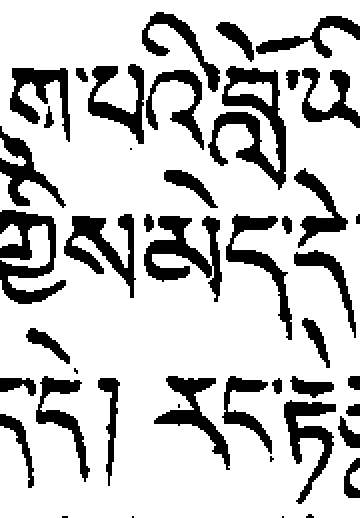 ག་པའི་བློ་ཡི
གྱིས་མེད་དེ
ད་དེ། རང་རྟེ